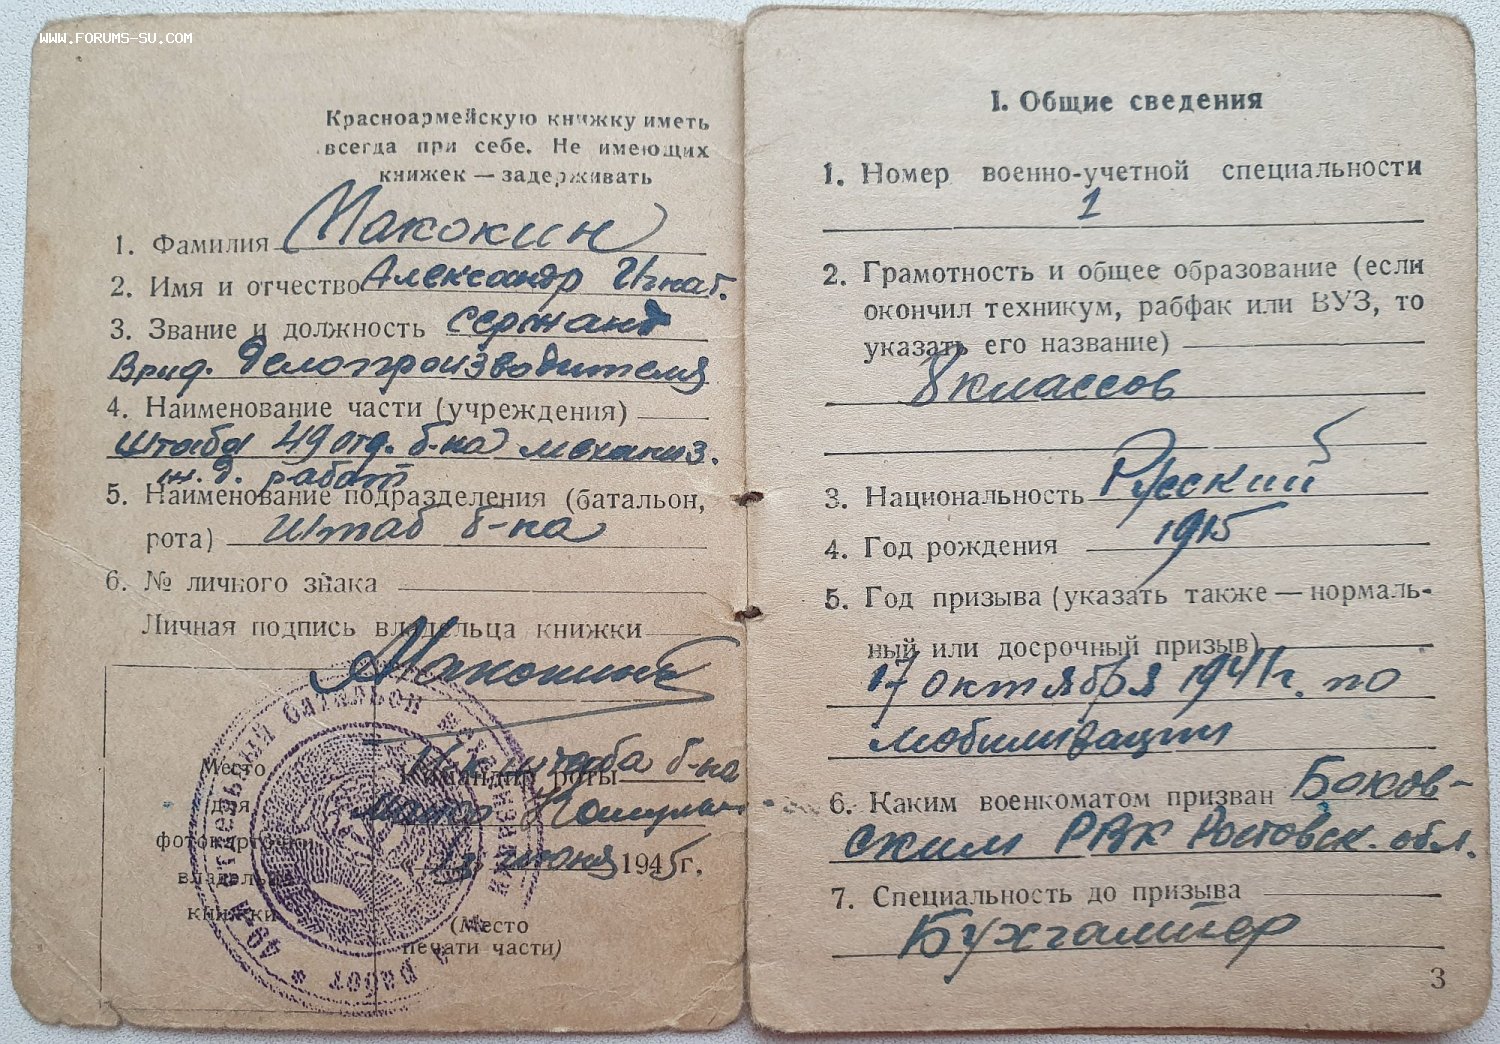 WWW.FORUMS-SU.COM
Красноармейскую книжку иметь
всегда при себе. Не имеющих
книжек — задерживать
1. Фамилия Макокин
2. Имя и отчество Александр Игнат.
3. Звание и должность сержант
Врид. делопроизводителя
4. Наименование части (учреждения)
штаба 49 отд. б-на механиз.
ж.д. работ
5. Наименование подразделения (батальон,
рота) Штаб б-на
6. № личного знака
Личная подпись владельца книжки
Место
для
фотокарточки
владельца
книжки
Н-к штаба б-на
Командир роты
июня 1945г.
(Место
печати части)
49-й отдельный батальон работ
I. Общие сведения
1. Номер военно-учетной специальности
1
2. Грамотность и общее образование (если
окончил техникум, рабфак или ВУЗ, то
указать его название)
8 классов
3. Национальность Русский
4. Год рождения 1915
5. Год призыва (указать также — нормаль-
ный или досрочный призыв)
17 октября 1941г. по
мобилизации
6. Каким военкоматом призван Боков-
ским РВК Ростовск. обл.
7. Специальность до призыва
Бухгалтер
3